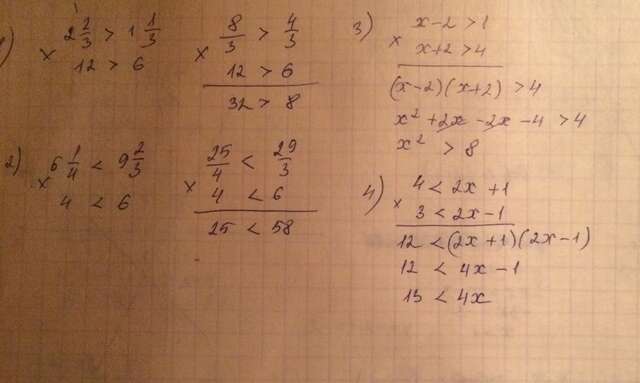 1) × 2 2/3 > 1 1/3
12 > 6
× 8/3 > 4/3
12 > 6
32 > 8
2) × 6 1/4 < 9 2/3
4 < 6
× 25/4 < 29/3
4 < 6
25 < 58
3) × x-2 > 1
x+2 > 4
(x-2)(x+2) > 4
x² + 2x - 2x - 4 > 4
x² > 8
4) × 4 < 2x + 1
3 < 2x - 1
12 < (2x + 1)(2x - 1)
12 < 4x - 1
13 < 4x